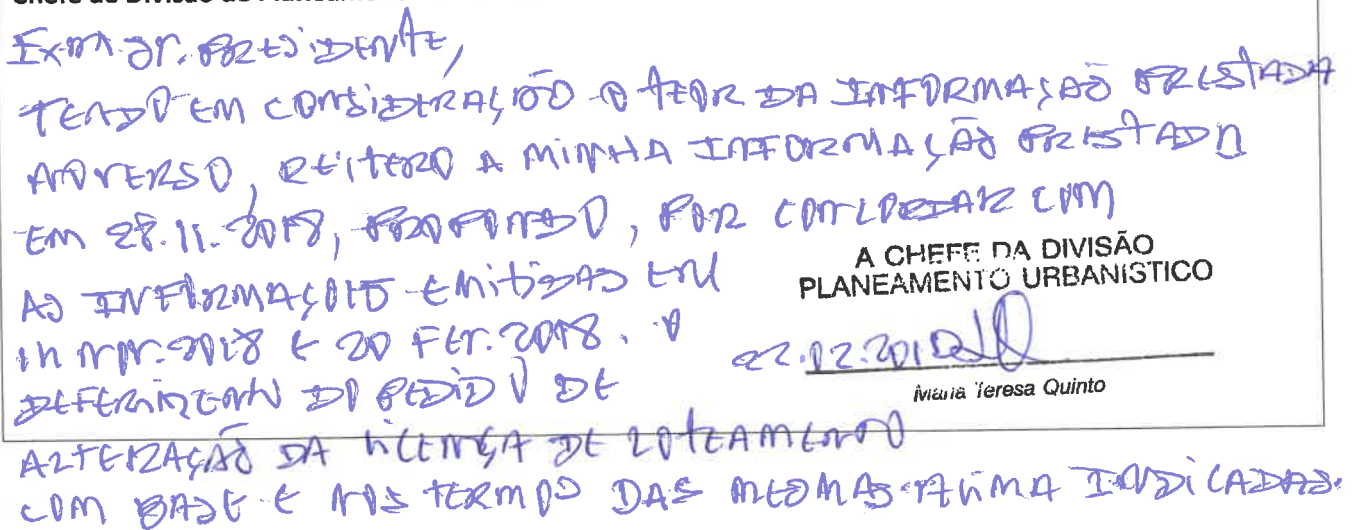 Chefe de Divisão de Planeam
Exmº Sr. PRESIDENTE,
TENDO EM CONSIDERAÇÃO O TEOR DA INFORMAÇÃO PRESTADA
NO VERSO, REITERO A MINHA INFORMAÇÃO PRESTADA
EM 28.11.2018, PROPONDO, POR CONCORDAR COM
AS INFORMAÇÕES EMITIDAS EM
2018 E 20 FEV. 2018. O
DEFERIMENTO DO PEDIDO DE
ALTERAÇÃO DA LICENÇA DE LOTEAMENTO
COM BASE E NOS TERMOS DAS MESMAS ACIMA INDICADAS.
A CHEFE DA DIVISÃO
PLANEAMENTO URBANÍSTICO
Maria Teresa Quinto